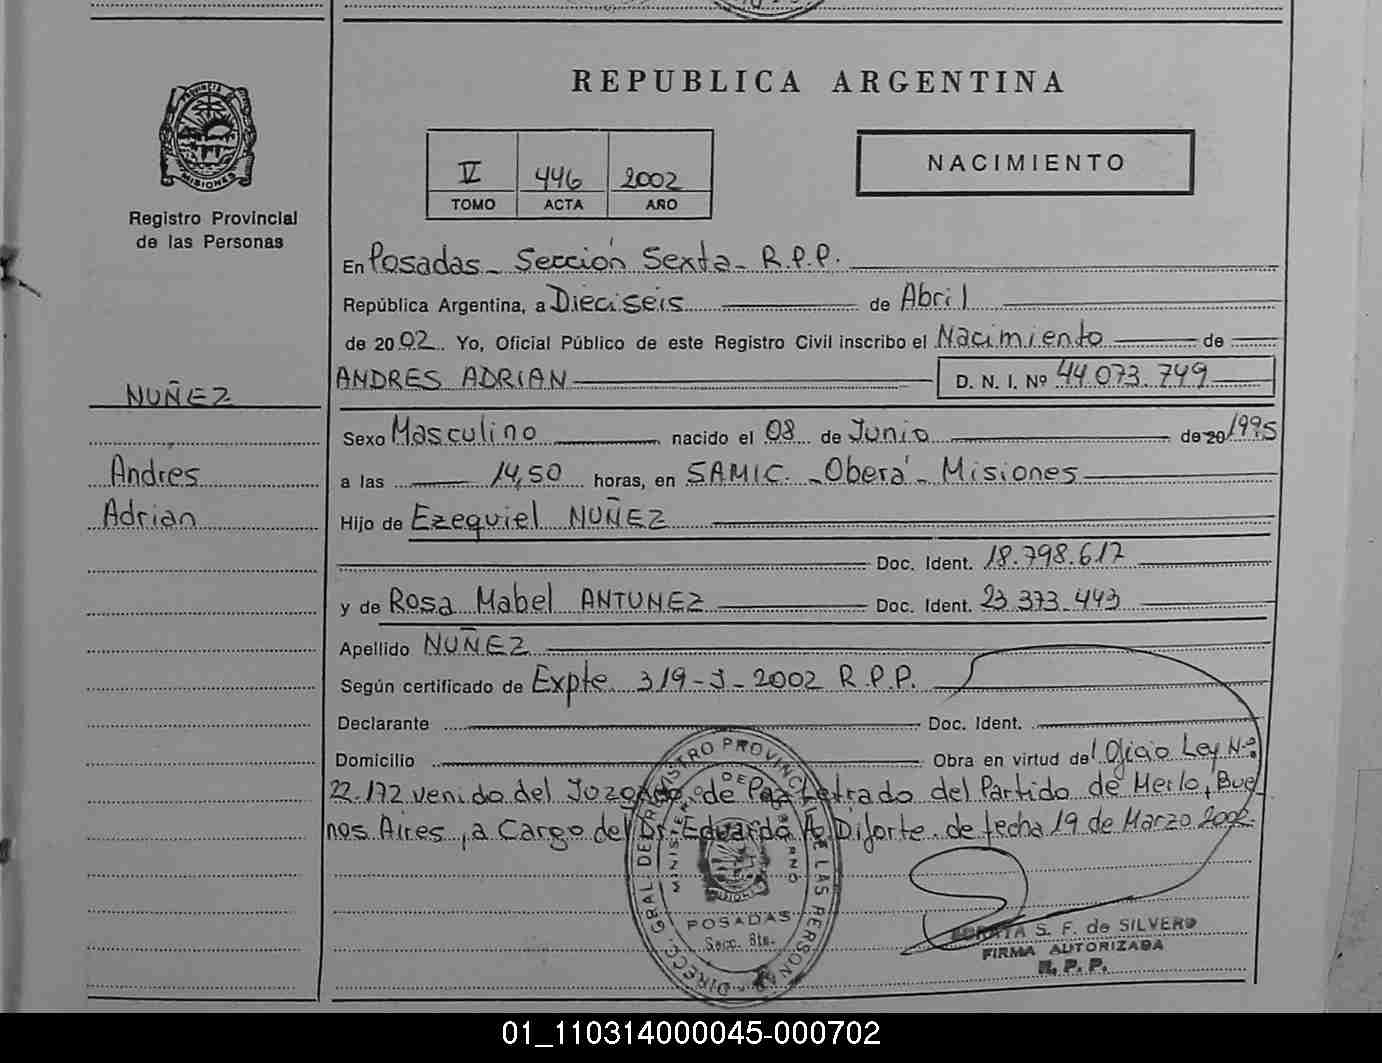 REPUBLICA ARGENTINA
PROVINCIA DE
MISIONES
Registro Provincial
de las Personas
IV 446 2002
TOMO ACTA AÑO
NACIMIENTO
En Posadas - Sección Sexta - R.P.P.
República Argentina, a Dieciseis de Abril
de 2002. Yo, Oficial Público de este Registro Civil inscribo el Nacimiento de
ANDRES ADRIAN D. N. I. Nº 44.073.749
NUÑEZ
Andrés
Adrian
Sexo Masculino nacido el 08 de Junio de 20 1995
a las 14,50 horas, en SAMIC. - Oberá - Misiones
Hijo de Ezequiel NUÑEZ
Doc. Ident. 18.798.617
y de Rosa Mabel ANTUNEZ Doc. Ident. 23.373.443
Apellido NUÑEZ
Según certificado de Expte. 319-J-2002 R.P.P.
Declarante Doc. Ident.
Domicilio Obra en virtud del Oficio Ley Nº
22.172 venido del Juzgado de Paz Letrado del Partido de Merlo, Bue-
nos Aires, a Cargo del Dr. Eduardo A. Diforte. de fecha 19 de Marzo 2002.
DIRECC. GRAL DE REGISTRO PROVINCIAL DE LAS PERSONAS
MINISTERIO DE GOBIERNO
POSADAS
Secc. 6ta.
S. F. de SILVERO
FIRMA AUTORIZADA
R. P. P.
01_110314000045-000702